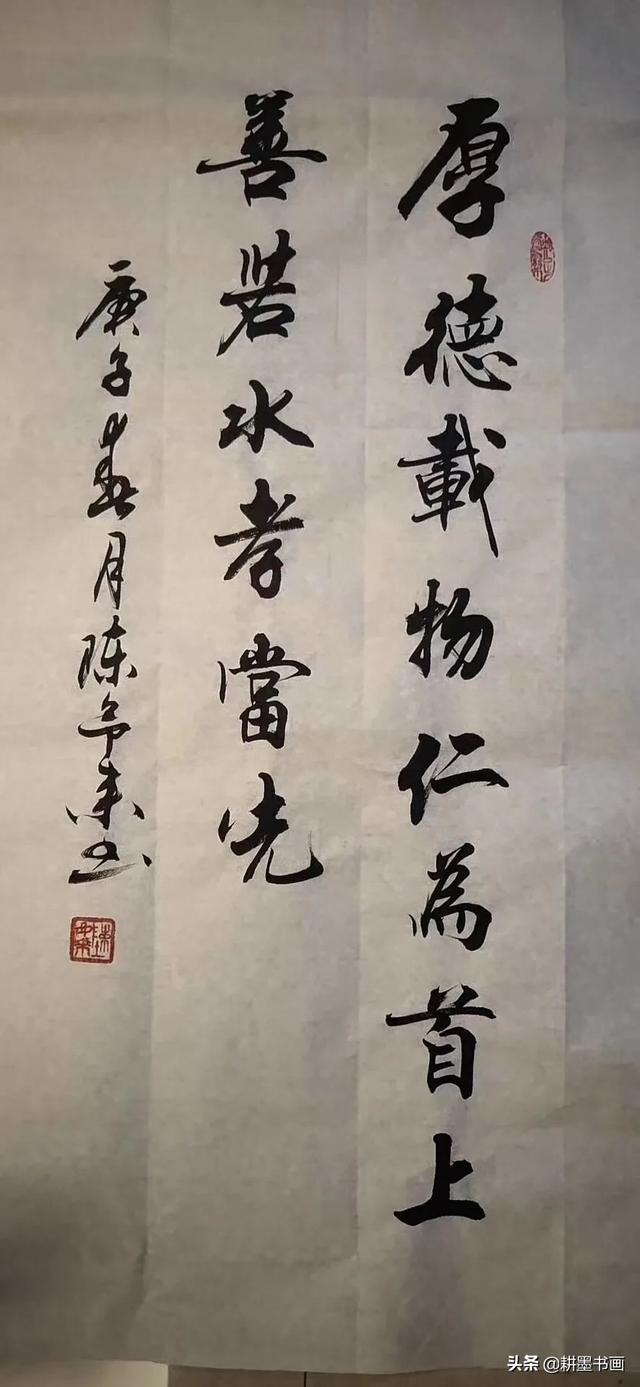 厚德載物仁為首上
善若水孝當先
庚子春月陈
书
头条 @耕墨书画